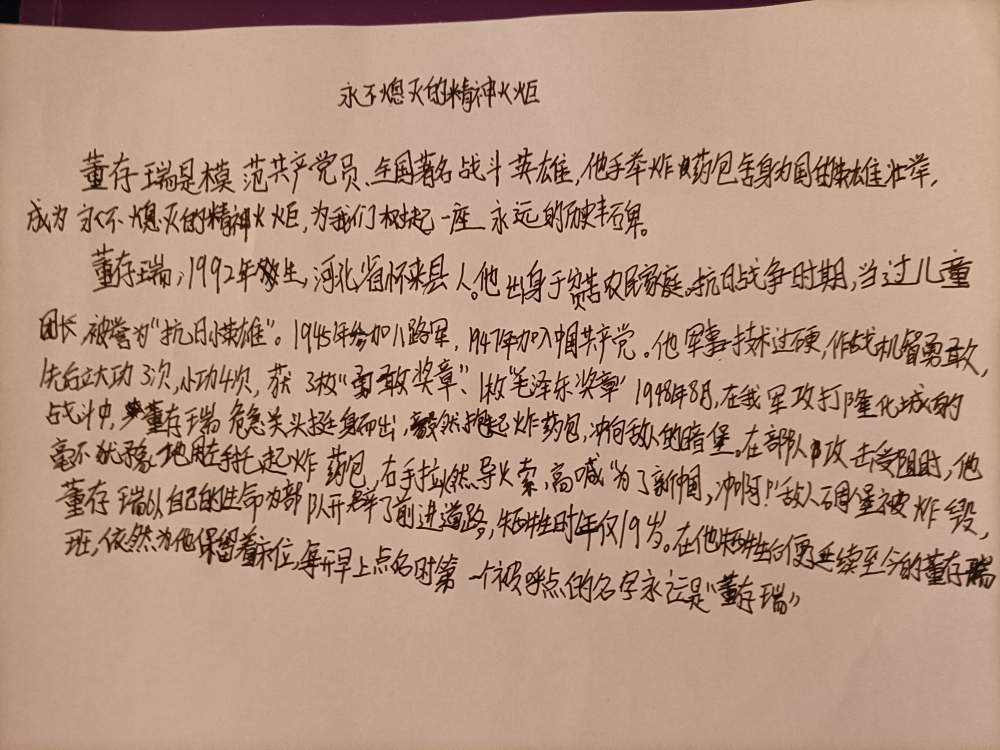 永不熄灭的精神火炬
董存瑞是模范共产党员、全国著名战斗英雄,他手举炸药包舍身为国的英雄壮举,
成为永不熄灭的精神火炬,为我们树起一座永远的历史丰碑。
董存瑞,1992年生,河北省怀来县人。他出身于贫苦农民家庭。抗日战争时期,当过儿童
团长,被誉为“抗日小英雄”。1945年参加八路军,1947年加入中国共产党。他军事技术过硬,作战机智勇敢,
先后立大功3次,小功4次,获3枚“勇敢奖章”、1枚“毛泽东奖章”1948年5月,在我军攻打隆化城的
战斗中,董存瑞危急关头挺身而出,毅然抱起炸药包,冲向敌人的暗堡。在部队攻击受阻时,他
毫不犹豫地用左手托起炸药包,右手拉燃导火索,高喊“为了新中国,冲啊!”敌人碉堡被炸毁,
董存瑞以自己的生命为部队开辟了前进道路,牺牲时年仅19岁。在他牺牲后便延续至今的董存瑞
班,依然为他保留着床位,每天早上点名时第一个被呼点的名字永远是“董存瑞”